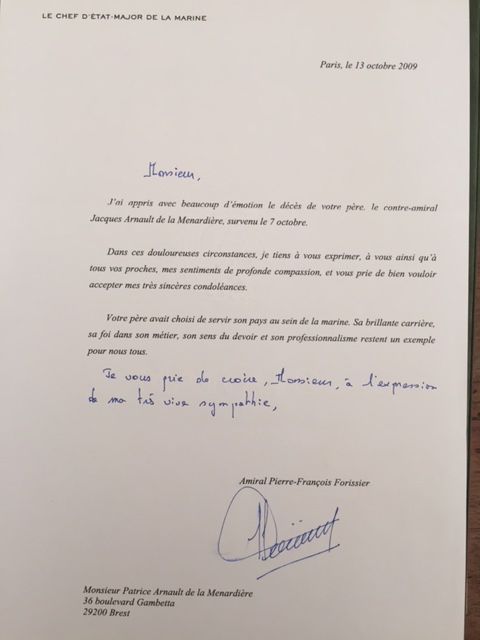 LE CHEF D'ÉTAT-MAJOR DE LA MARINE
Paris, le 13 octobre 2009
Monsieur,
J'ai appris avec beaucoup d'émotion le décès de votre père, le contre-amiral
Jacques Arnault de la Menardière, survenu le 7 octobre.
Dans ces douloureuses circonstances, je tiens à vous exprimer, à vous ainsi qu'à
tous vos proches, mes sentiments de profonde compassion, et vous prie de bien vouloir
accepter mes très sincères condoléances.
Votre père avait choisi de servir son pays au sein de la marine. Sa brillante carrière,
sa foi dans son métier, son sens du devoir et son professionnalisme restent un exemple
pour nous tous.
Je vous prie de croire, Monsieur, à l'expression
de ma très vive sympathie,
Amiral Pierre-François Forissier
Monsieur Patrice Arnault de la Menardière
36 boulevard Gambetta
29200 Brest